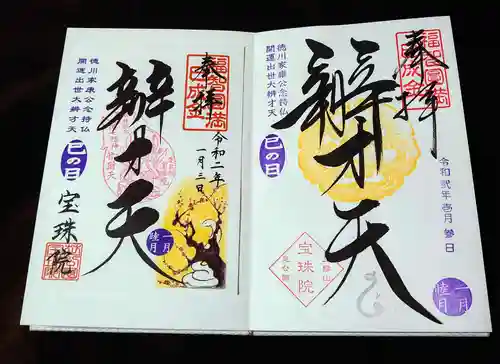 奉拝
福智円満
令和二年
一月三日
辨才天
徳川家康公念持仏
開運出世大辨才天
巳の日
宝珠院
一月
睦月
奉拝
福智円満
令和弐年壱月参日
辨才天
徳川家康公念持仏
開運出世大辨才天
巳の日
宝珠院
一月
睦月